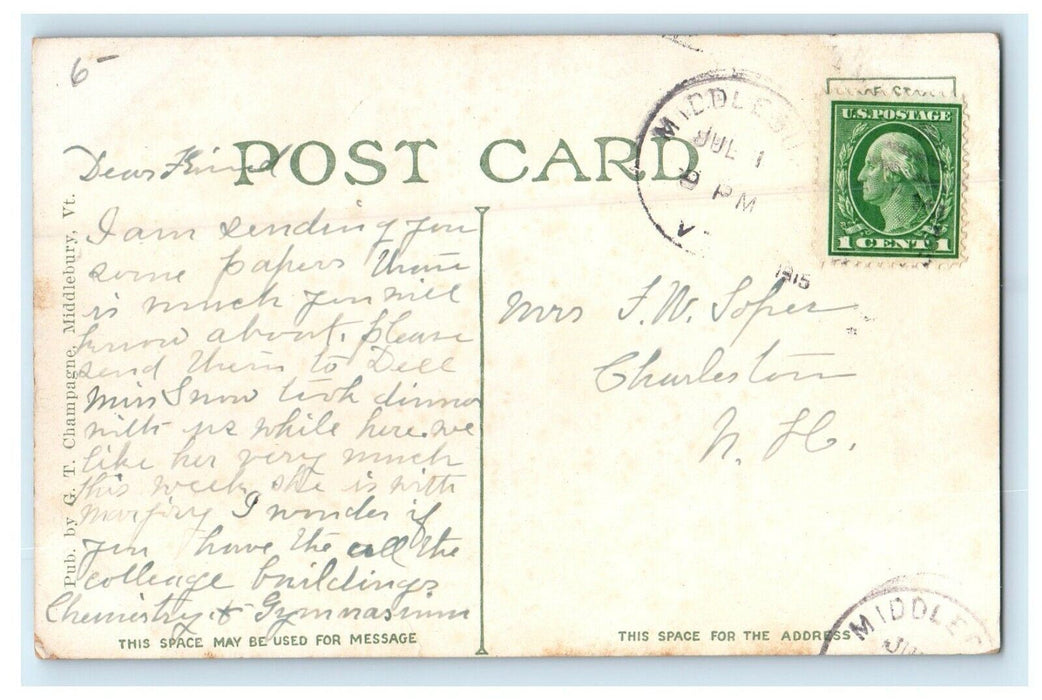 6-
POST CARD
MIDDLEBU
JUL 1
9 PM
V
1915
U.S. POSTAGE
1 CENT 1
Dear Friend
I am sending you
some papers there
is much you will
know about. please
send them to Dell
Miss Snow took dinner
with us while here. we
like her very much
this week she is with
Marjory I wonder if
you have the all the
colleage buildings
Chemistry & Gymnasium
Mrs F. W. Soper
Charlestown
N. H.
Pub. by G. T. Champagne, Middlebury, Vt.
THIS SPACE MAY BE USED FOR MESSAGE
THIS SPACE FOR THE ADDRESS
MIDDLEB
JU